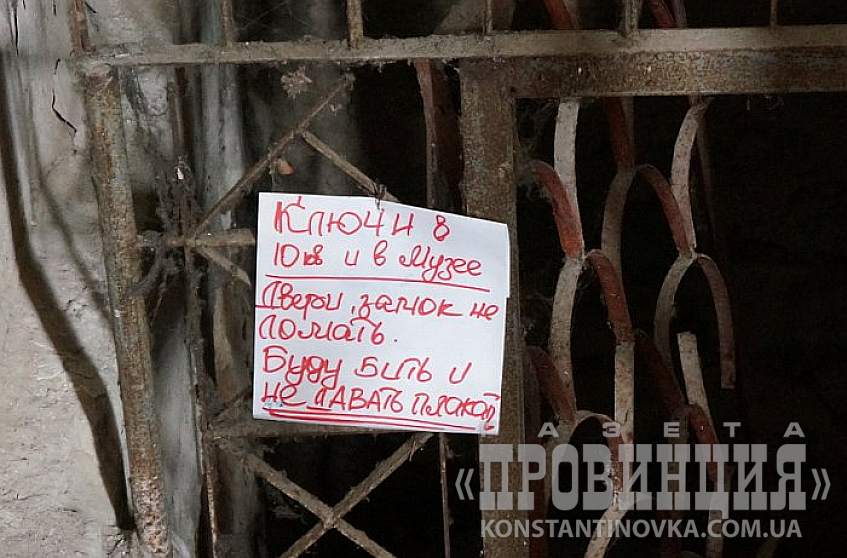 Ключи в
10 кв и в Музее
Двери, замок не
ломать.
Буду бить и
не давать плакать
ГАЗЕТА
«ПРОВИНЦИЯ»
KONSTANTINOVKA.COM.UA